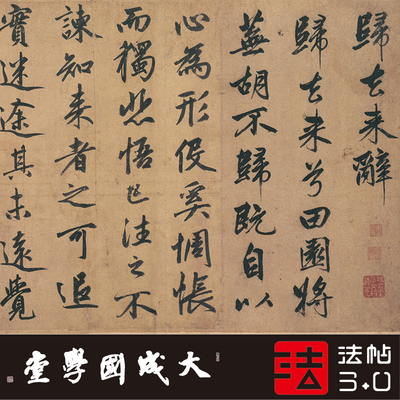 歸去来辭
歸去来兮田園將
蕪胡不歸既自以
心為形役奚惆悵
而獨悲悟已往之不
諫知来者之可追
實迷途其未遠覺
大成國學堂
法
法帖
3.0